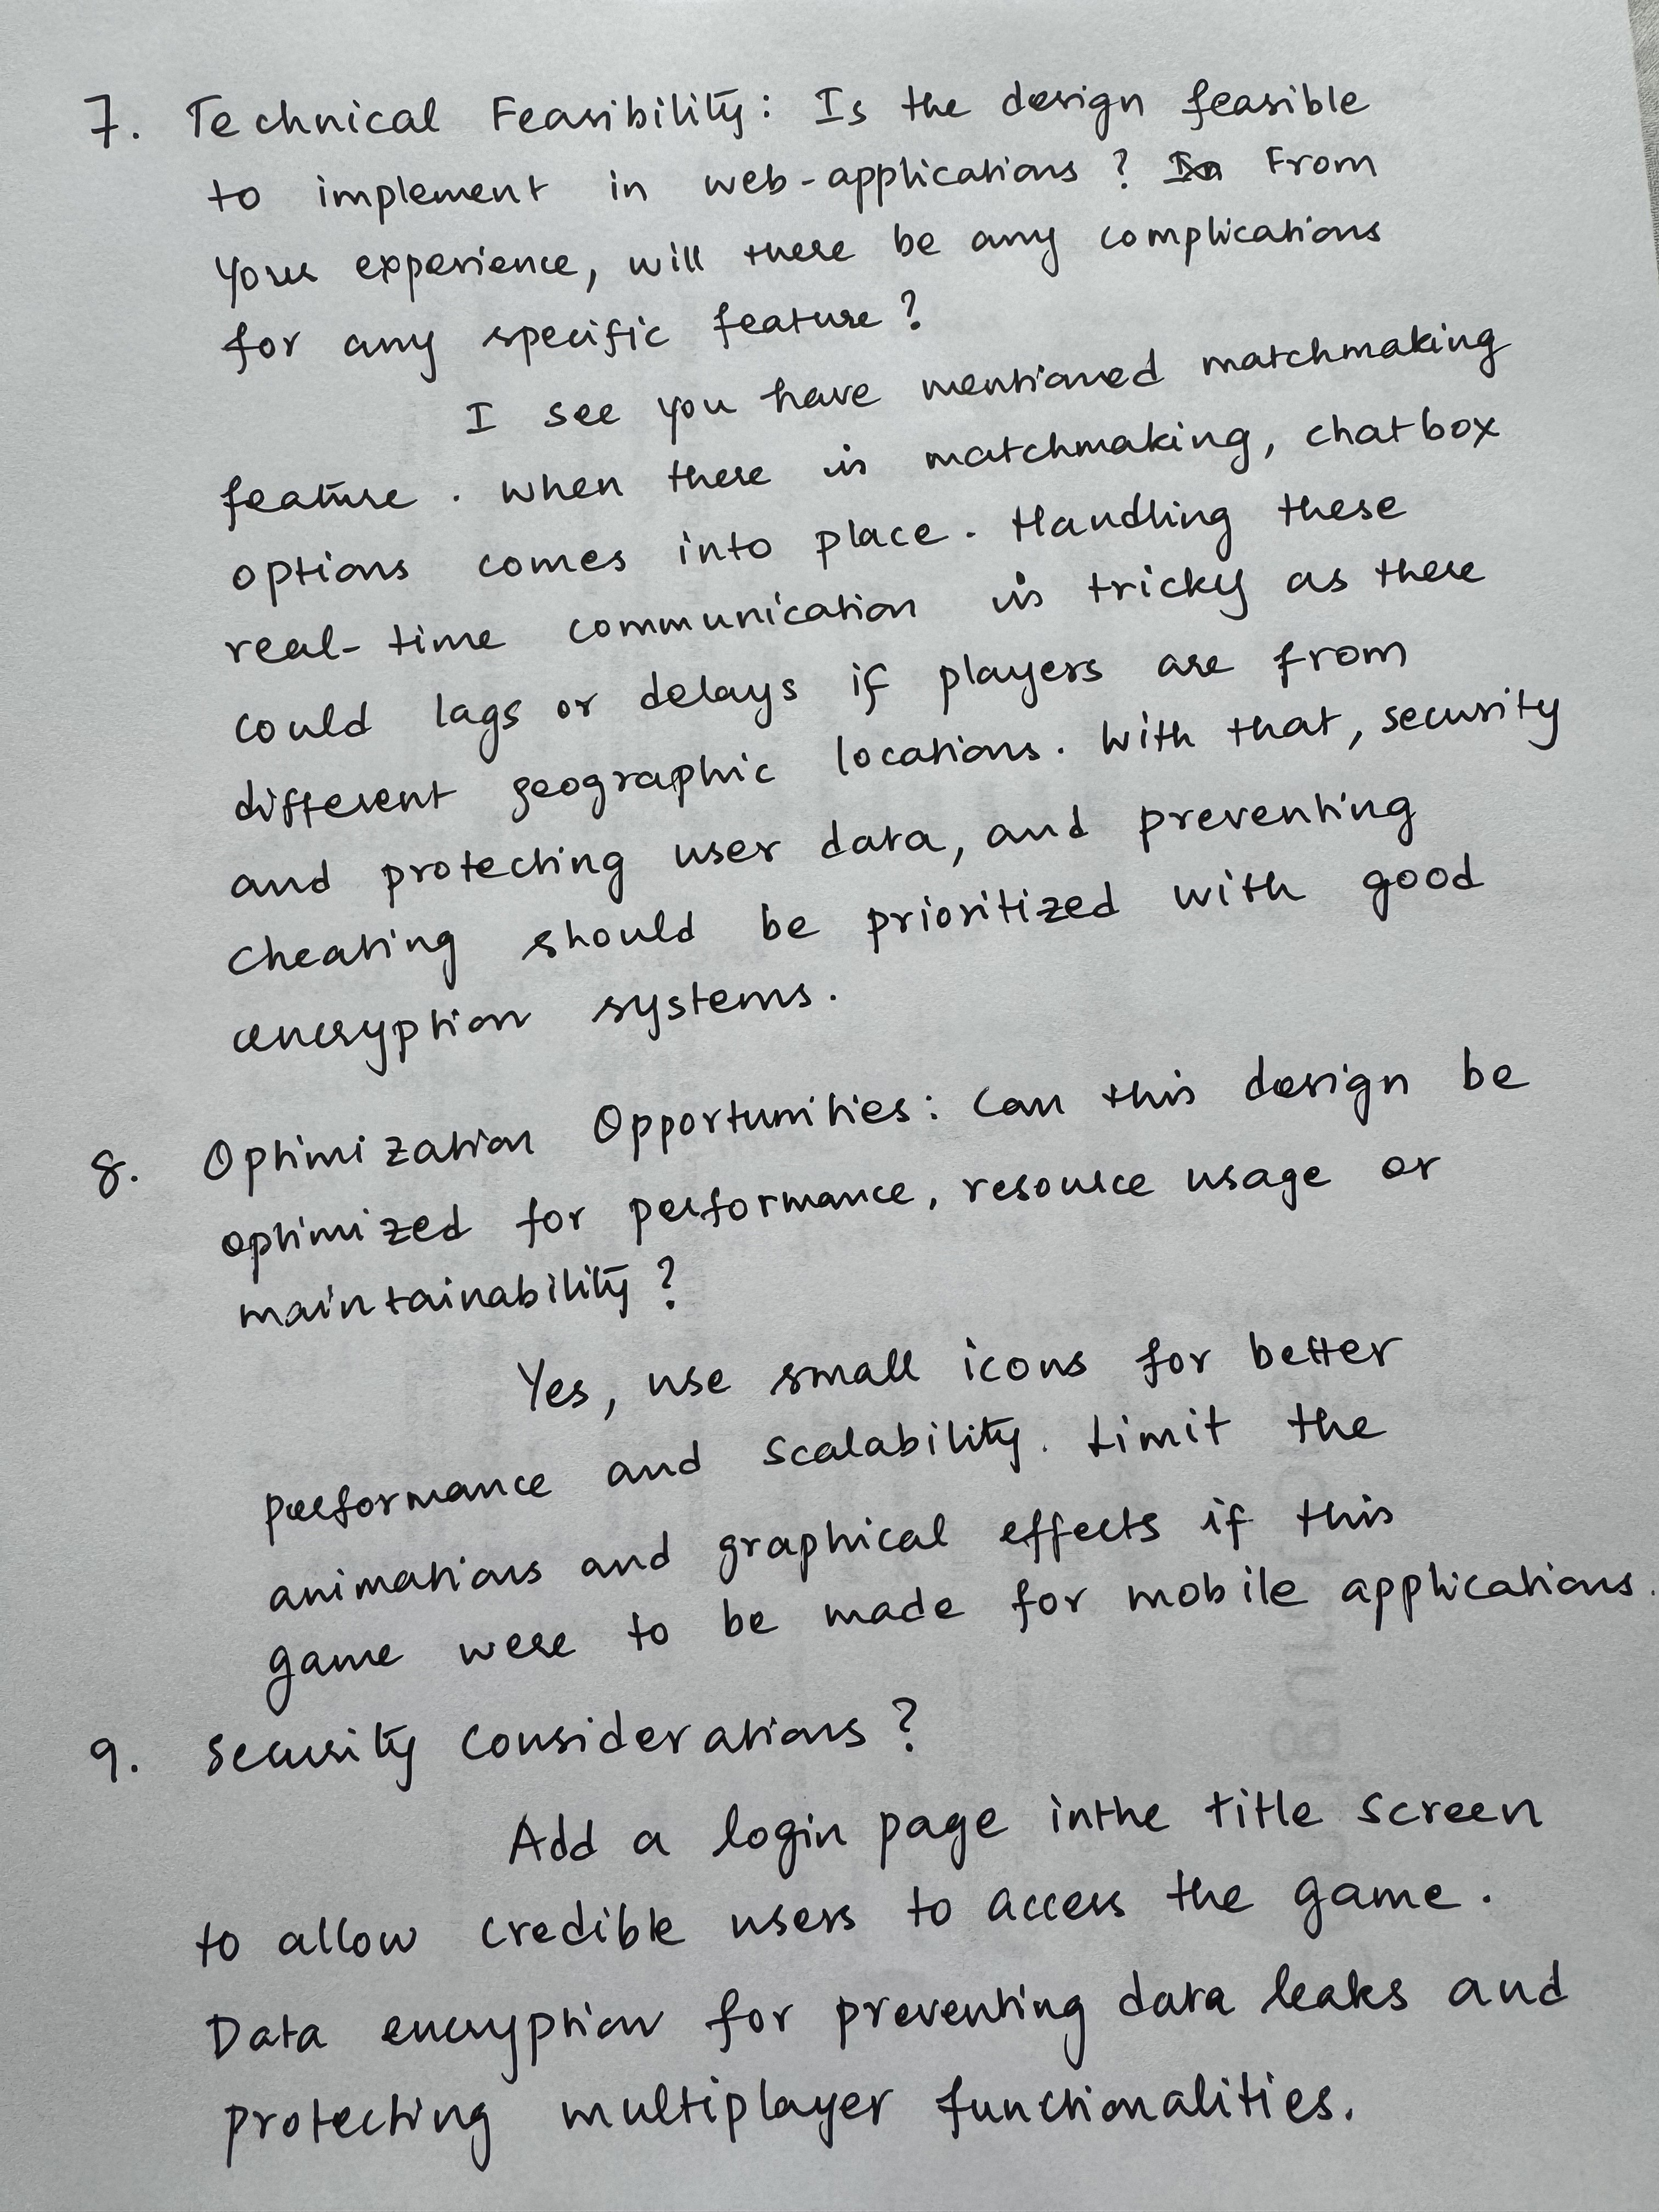 7. Technical Feasibility: Is the design feasible
to implement in web-applications? From
your experience, will there be any complications
for any specific feature?
I see you have mentioned matchmaking
feature. When there is matchmaking, chatbox
options comes into place. Handling these
real-time communication is tricky as there
could lags or delays if players are from
different geographic locations. With that, security
and protecting user data, and preventing
cheating should be prioritized with good
encryption systems.
8. Optimization Opportunities: Can this design be
optimized for performance, resource usage or
maintainability?
Yes, use small icons for better
performance and scalability. Limit the
animations and graphical effects if this
game were to be made for mobile applications.
9. Security Considerations?
Add a login page inthe title screen
to allow credible users to access the game.
Data encryption for preventing data leaks and
protecting multiplayer functionalities.